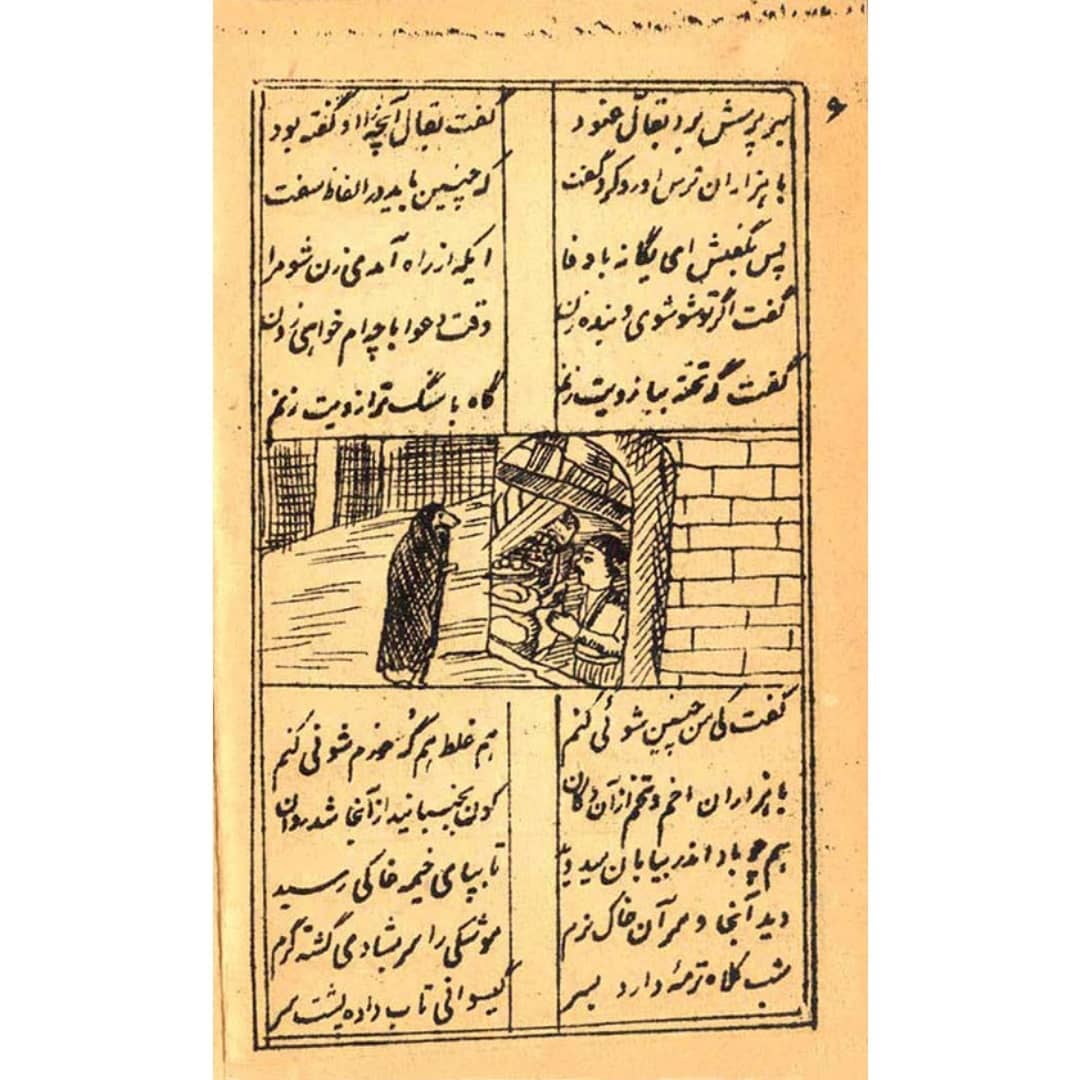 ۶
سر پرسش برد بقال عنود گفت بقال آنچه را او گفته بود
با هزاران ترس او رو کرد و گفت که چنین باید در الفاظ سفت
پس بگفتش ای یگانه با وفا ایکه از راه آمدی زن شو مرا
گفت اگر تو شو شوی و بنده زن وقت دعوا با چه ام خواهی زدن
گفت گه تخته ببازویت زنم گاه با سنگ ترازویت زنم
گفت کی من چنین شوئی کنم هم غلط هم گُه خورم شوئی کنم
با هزاران اخم و تخم از آن دکان کون بجنبانید از آنجا شد روان
هم چو باد اندر بیابان میدوید تا بپای خیمه خاکی رسید
دید آنجا در مر آن خاک نرم موشکی را سر بشادی گشته گرم
شب کلاه ترمهٔ دارد بسر گیسوانی تاب داده پشت سر